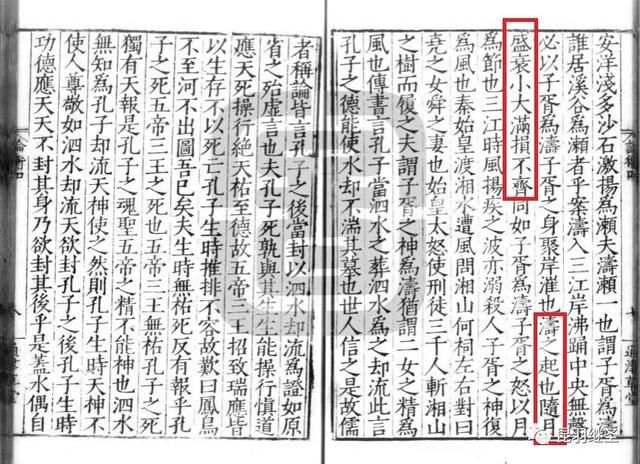 安洋淺多沙石激揚為瀨夫濤瀨一也謂子胥為濤
誰居溪谷為瀨者乎案濤入三江岸沸踊中央無聲
必以子胥為濤子胥之身聚岸漼也濤之起也隨月
盛衰小大滿損不齊同如子胥為濤子胥之怒以月
為節也三江時風揚疾之波亦溺殺人子胥之神復
為風也秦始皇渡湘水遭風問湘山何祠左右對曰
堯之女舜之妻也始皇太怒使刑徒三千人斬湘山
之樹而履之夫謂子胥之神為濤猶謂二女之精為
風也傳書言孔子當泗水之葬泗水為之却流此言
孔子之德能使水却不湍其墓也世人信之是故儒
者稱論皆言孔子之後當封以泗水却流為證如原
省之殆虛言也夫孔子死孰與其生生能操行慎道
應天死操行絕天祐至德故五帝三王招致瑞應皆
以生存不以死亡孔子生時推排不容故歎曰鳳鳥
不至河不出圖吾已矣夫生時無祐死反有報乎孔
子之死五帝三王之死也五帝三王無祐孔子之死
獨有天報是孔子之魂聖五帝之精不能神也泗水
無知為孔子却流天神使之然則孔子生時天神不
使人尊敬如泗水却流天欲封孔子之後孔子生時
功德應天天不封其身乃欲封其後乎是蓋水偶自
昆羽继圣